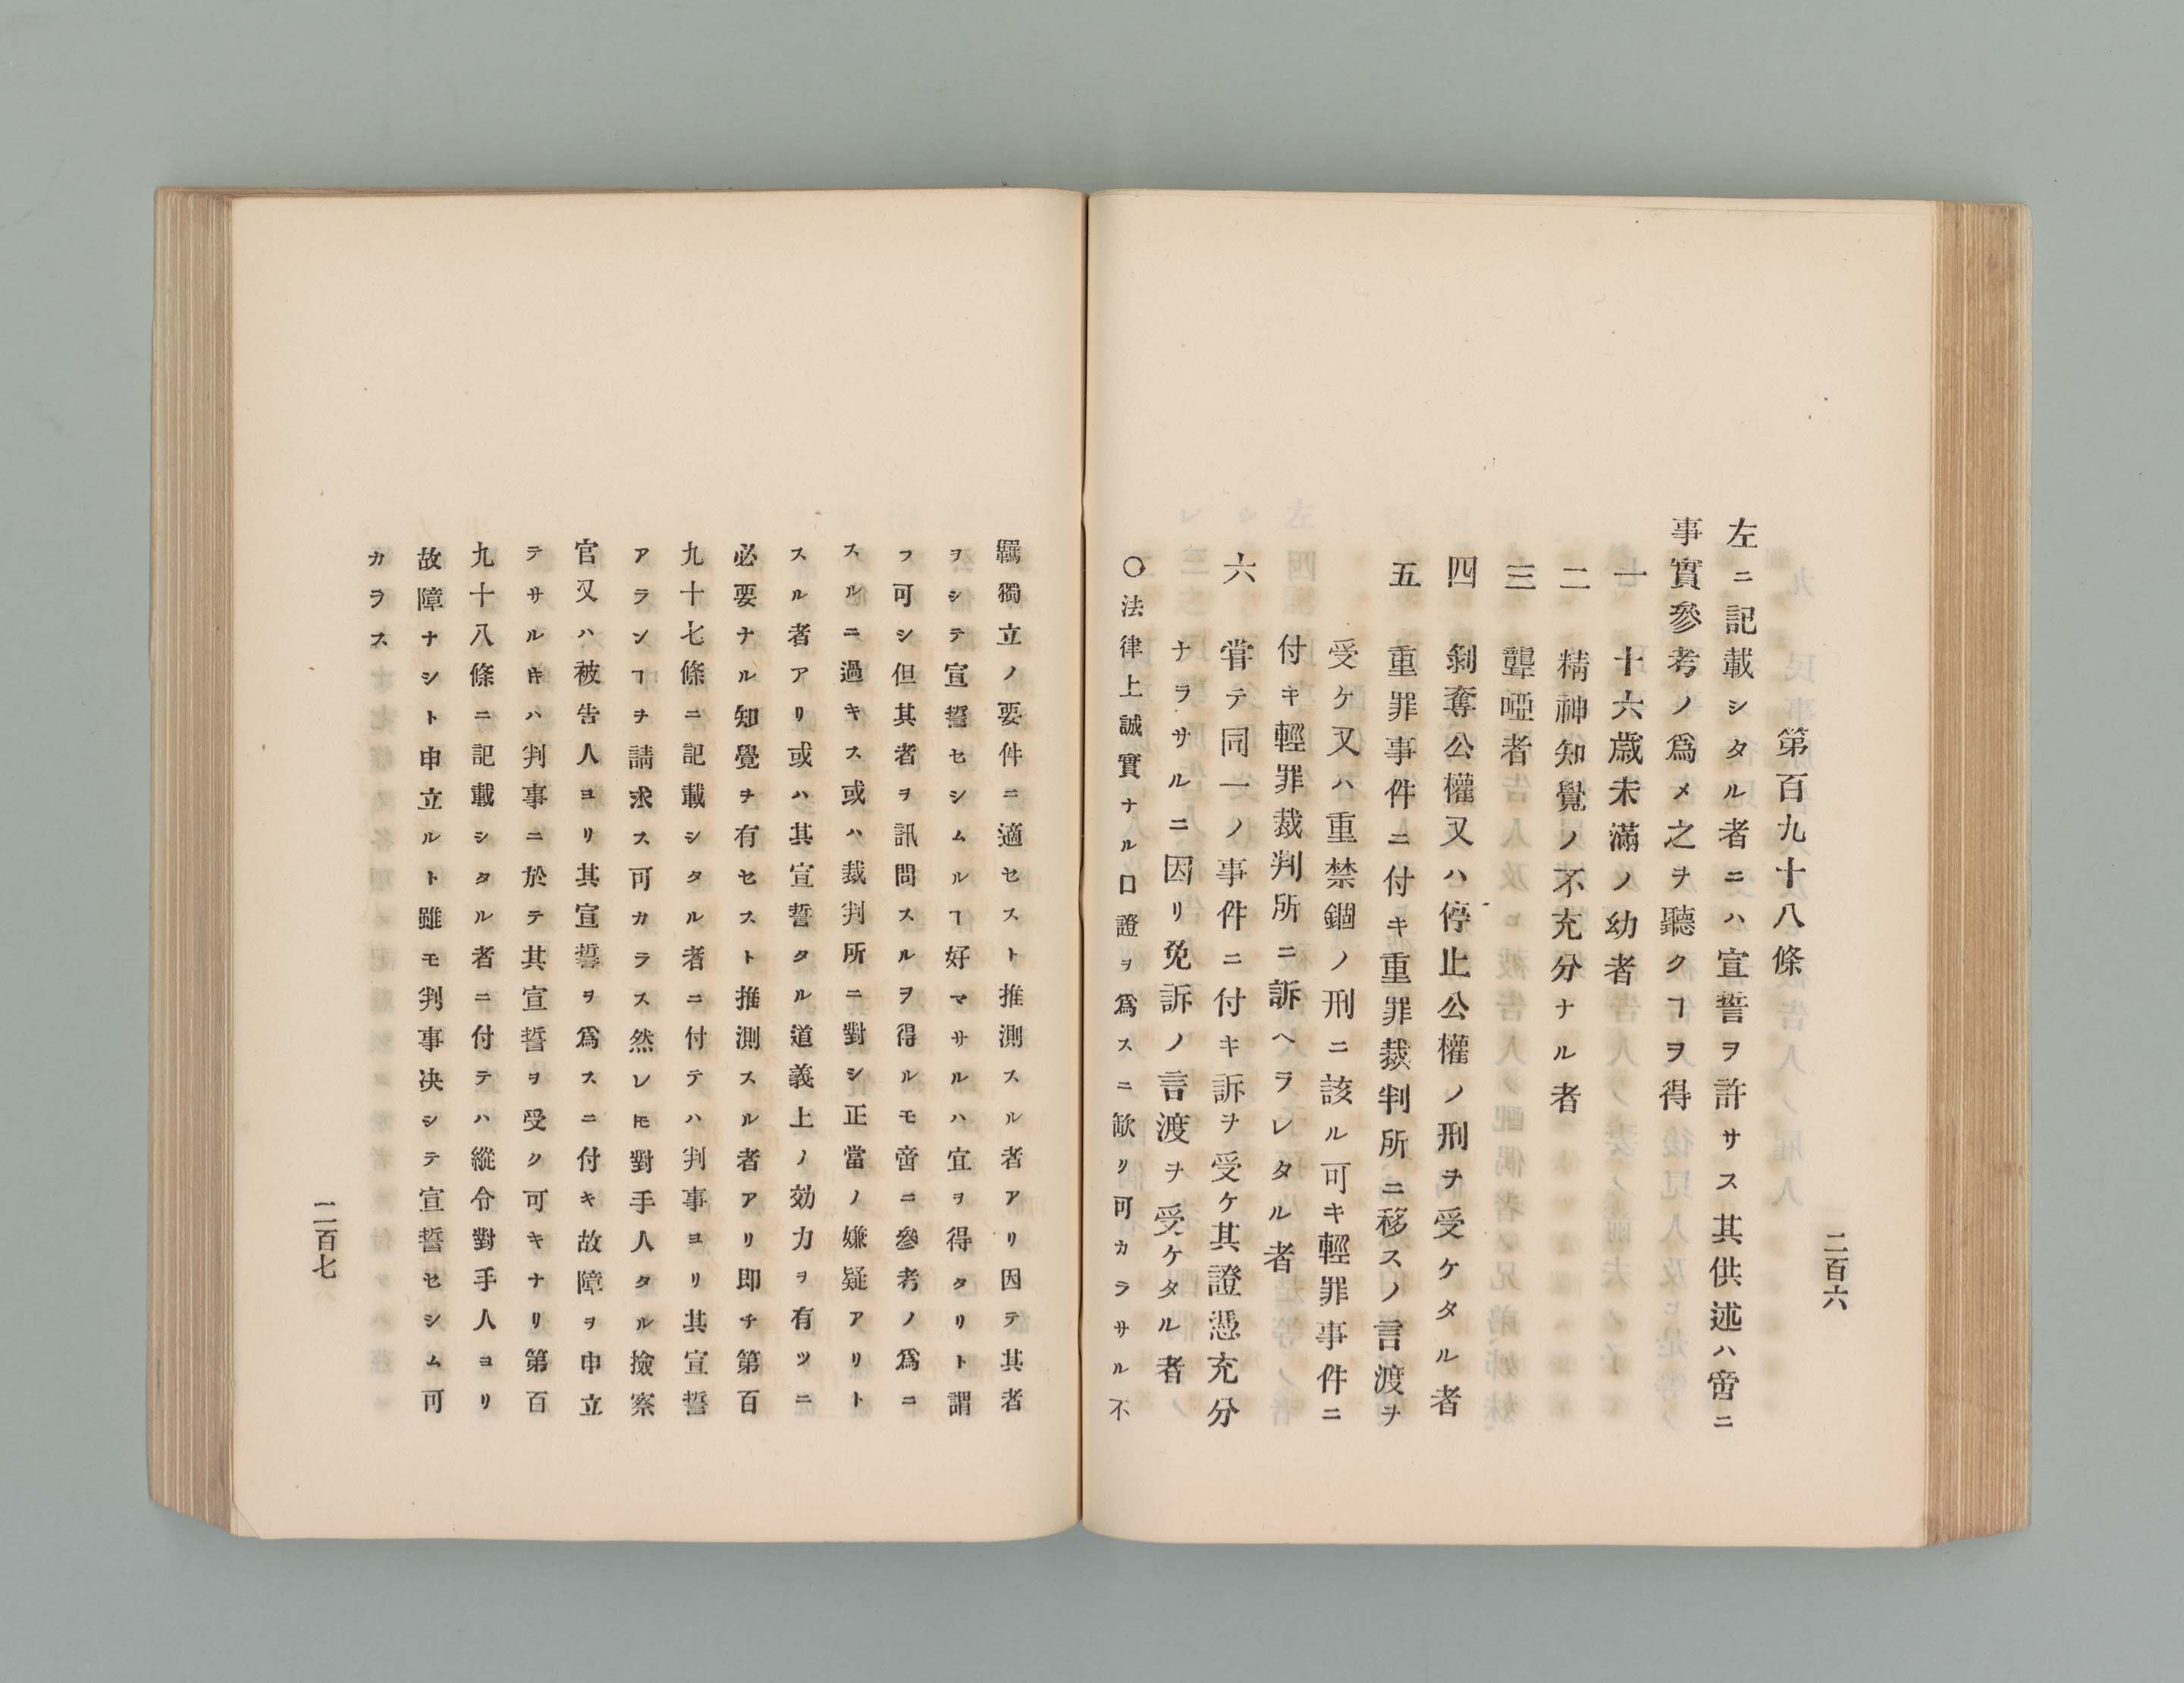 二百六
第百九十八條
左ニ記載シタル者ニハ宣誓ヲ許サス其供述ハ啻ニ
事實參考ノ爲メ之ヲ聽クヿヲ得
一 十六歳未滿ノ幼者
二 精神知覺ノ不充分ナル者
三 聾啞者
四 剝奪公權又ハ停止公權ノ刑ヲ受ケタル者
五 重罪事件ニ付キ重罪裁判所ニ移スノ言渡ヲ
受ケ又ハ重禁錮ノ刑ニ該ル可キ輕罪事件ニ
付キ輕罪裁判所ニ訴ヘラレタル者
六 甞テ同一ノ事件ニ付キ訴ヲ受ケ其證憑充分
ナラサルニ因リ免訴ノ言渡ヲ受ケタル者
〇法律上誠實ナル口證ヲ爲スニ歉リ可カラサル不
羈獨立ノ要件ニ適セスト推測スル者アリ因テ其者
ヲシテ宣誓セシムルヿ好マサルハ宜ヲ得タリト謂
フ可シ但其者ヲ訊問スルヲ得ルモ啻ニ參考ノ爲ニ
スルニ過キス或ハ裁判所ニ對シ正當ノ嫌疑アリト
スル者アリ或ハ其宣誓タル道義上ノ効力ヲ有ツニ
必要ナル知覺ヲ有セスト推測スル者アリ即チ第百
九十七條ニ記載シタル者ニ付テハ判事ヨリ其宣誓
アランヿヲ請求ス可カラス然レ𪜈對手人タル撿察
官又ハ被告人ヨリ其宣誓ヲ爲スニ付キ故障ヲ申立
テサルキハ判事ニ於テ其宣誓ヲ受ク可キナリ第百
九十八條ニ記載シタル者ニ付テハ縱令對手人ヨリ
故障ナシト申立ルト雖モ判事决シテ宣誓セシム可
カラス
二百七